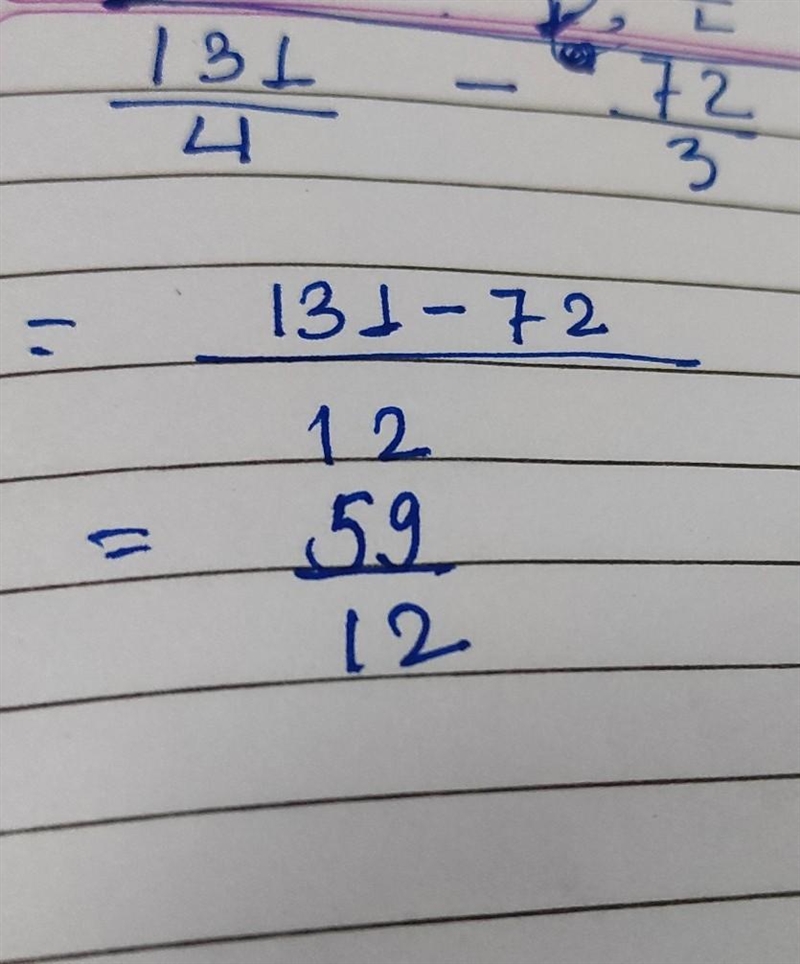 131/4 - 72/3
= 131-72/12
= 59/12